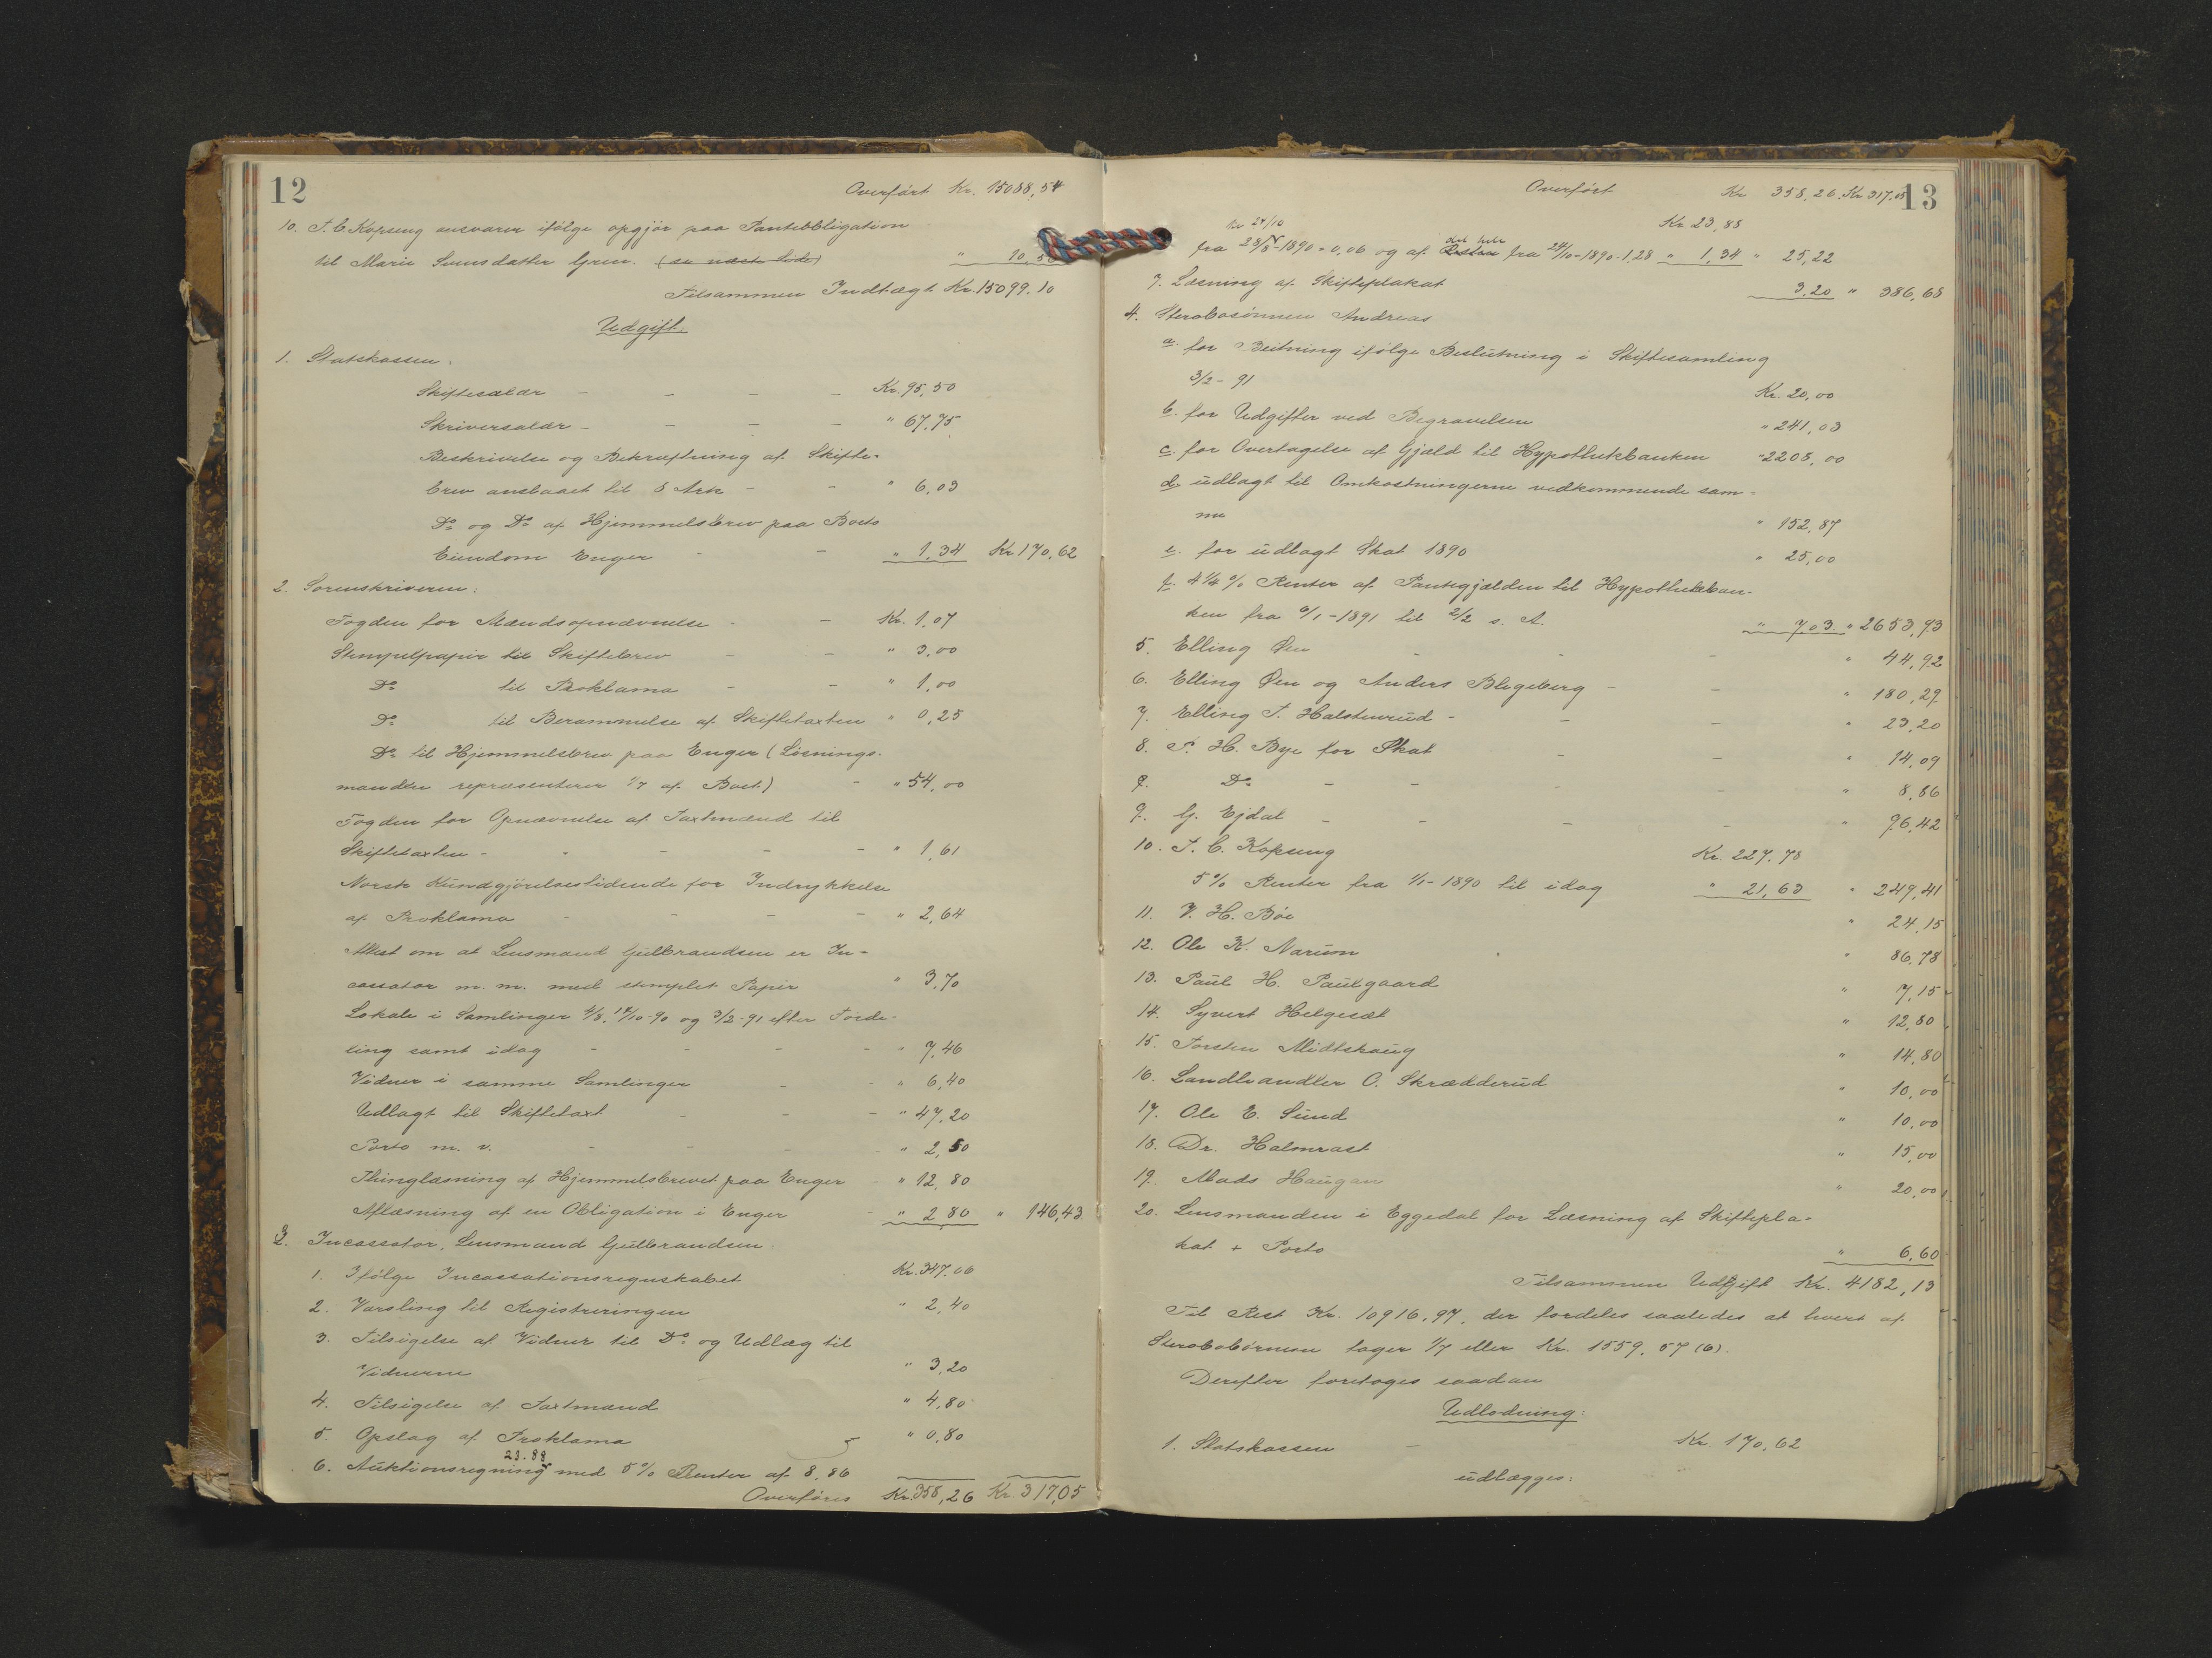 12
Overført Kr. 15088,54
10. T. C. Kopseng ansvarer ifølge opgjør paa Pantobligation
til Marie Svensdatter Gren. (se næste Side) " 10,56
Tilsammen Indtægt Kr. 15099.10
Udgift.
1. Statskassen.
Skiftesalær - - - - Kr. 95,50
Skriversalær - - - - " 67,75
Beskrivelse og Bekræftning af Skifte-
brev anslaaet til 8 Ark - - " 6,03
Do og Do af Hjemmelsbrev paa Boets
Eiendom Enger - - " 1,34 Kr. 170,62
2. Sorenskriveren:
Fogden for Mændsopnævnelse - - Kr. 1,07
Stempelpapir til Skiftebrev - - " 3,00
Do til Proklama - - " 1,00
Do til Berammelse af Skiftetaxten " 0,25
Do til Hjemmelsbrev paa Enger (Løsnings-
manden repræsenterer 1/7 af Boet) - " 54,00
Fogden for Opnævnelse af Taxtmænd til
Skiftetaxten - - - - - " 1,61
Norsk Kundgjørelsestidende for Indrykkelse
af Proklama - - - - " 2,64
Attest om at Lensmand Gulbrandsen er In-
cassator m. m. med stemplet Papir " 3,70
Lokale i Samlinger 4/8, 14/10-90 og 3/2-91 efter Forde-
ling samt idag - - - - " 7,46
Vidner i samme Samlinger - - " 6,40
Udlagt til Skiftetaxt - - - " 47,20
Porto m. v. - - - - " 2,50
Thinglæsning af Hjemmelsbrevet paa Enger - " 12,80
Aflæsning af en Obligation i Enger - " 2,80 " 146,43
3. Incassator, Lensmand Gulbrandsen:
1. Ifølge Incassationsregnskabet Kr. 347.06
2. Varsling til Registreringen " 2,40
3. Tilsigelse af Vidner til Do og Udlæg til
Vidnerne " 3,20
4. Tilsigelse af Taxtmænd " 4,80
5. Opslag af Proklama " 0,80
23.88
6. Auktionsregning med 5% Renter af 8,86
Overføres Kr. 358,26 Kr. 317,05
13
Overført Kr. 358,26. Kr. 317,05
24/10 Kr. 23,88
fra 28/8-1890 = 0,06 og af det hele Resten fra 24/10-1890 - 1,28 " 1,34 " 25,22
7. Læsning af Skifteplakat 3,20 " 386,68
4. Sterbosønnen Andreas
a. for Beitning ifølge Beslutning i Skiftesamling
3/2 - 91 Kr. 20,00
b. for Udgifter ved Begravelsen " 241,03
c. for Overtagelse af Gjæld til Hypothekbanken " 2208,00
d. udlagt til Omkostningerne vedkommende sam-
me " 152,87
e. for udlagt Skat 1890 " 25,00
f. 4 1/4 % Renter af Pantegjælden til Hypothekban-
ken fra 6/1-1891 til 2/2 s. A. " 7,03. " 2653,93
5. Elling Øen - - - " 44,92
6. Elling Øen og Anders Bligeberg - - " 180,29
7. Elling T. Halstenrud - - - " 23,20
8. P. H. Bye for Skat - - " 14,09
9. Do - - - - " 8,86
9. G. Ejdal - - - - " 96,42
10. T. C. Kopseng Kr. 227.78
5% Renter fra 1/1-1890 til idag " 21,63 " 249,41
11. V. H. Bøe " 24,15
12. Ole K. Narum " 86,78
13. Paul H. Paulgaard " 7,15
14. Syvert Helgesæt " 12,80
15. Torsten Midtskaug " 14,80
16. Landhandler O. Skrædderud " 10,00
17. Ole E. Sund " 10,00
18. Dr. Halmrast " 15,00
19. Mads Haugan " 20,00
20. Lensmanden i Eggedal for Læsning af Skiftepla-
kat + Porto " 6,60
Tilsammen Udgift Kr. 4182,13
Til Rest Kr. 10916,97, der fordeles saaledes at hvert af
Sterbobørnene tager 1/7 eller Kr. 1559.57 (6).
Derefter foretoges saadan
Udlodning:
1. Statskassen - - Kr. 170,62
udlægges: